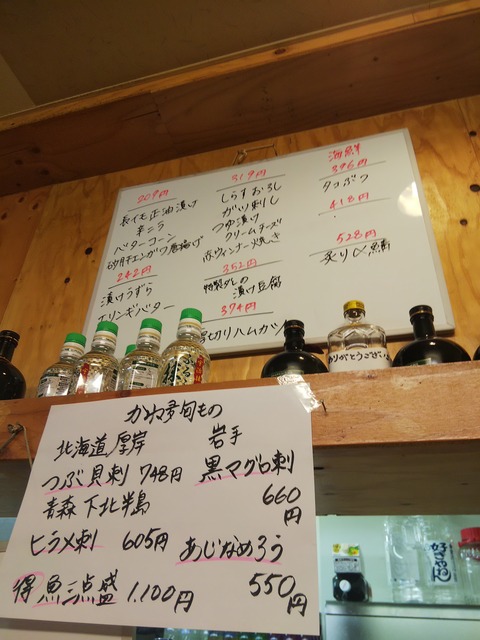 209円
長イモ正油漬け
辛こう
ベターコーン
砂肝チェンガワ唐揚げ
242円
漬けうずら
エリンギバター
319円
しらすおろし
ガリ刺し
つゆ漬け
クリームチーズ
赤ウィンナー焼き
352円
特製ダレの
漬け豆腐
374円
厚切りハムカツ
海鮮
396円
タコぶつ
418円
528円
炙り〆鯖
ありがとうござい
旬もの
北海道厚岸
つぶ貝刺 748円
青森 下北半島
ヒラメ刺 605円
得 魚三点盛 1.100円
岩手
黒マグロ刺
660
円
あじなめろう
550
円